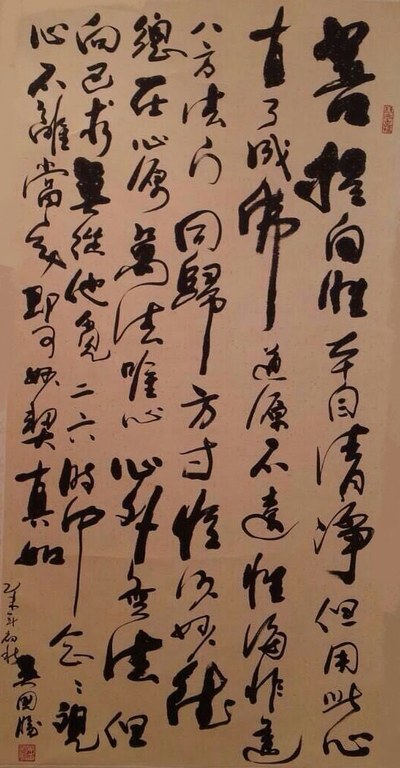 菩提自性本自清净但用此心
直了成佛道源不遠性海非遥
八方法门同歸方寸恒沙妙德
總在心源萬法唯心心外无法但
向己求無從他覓二六時中念々觀
心不離當處即可妙契真如
乙未年初秋
吴國勝